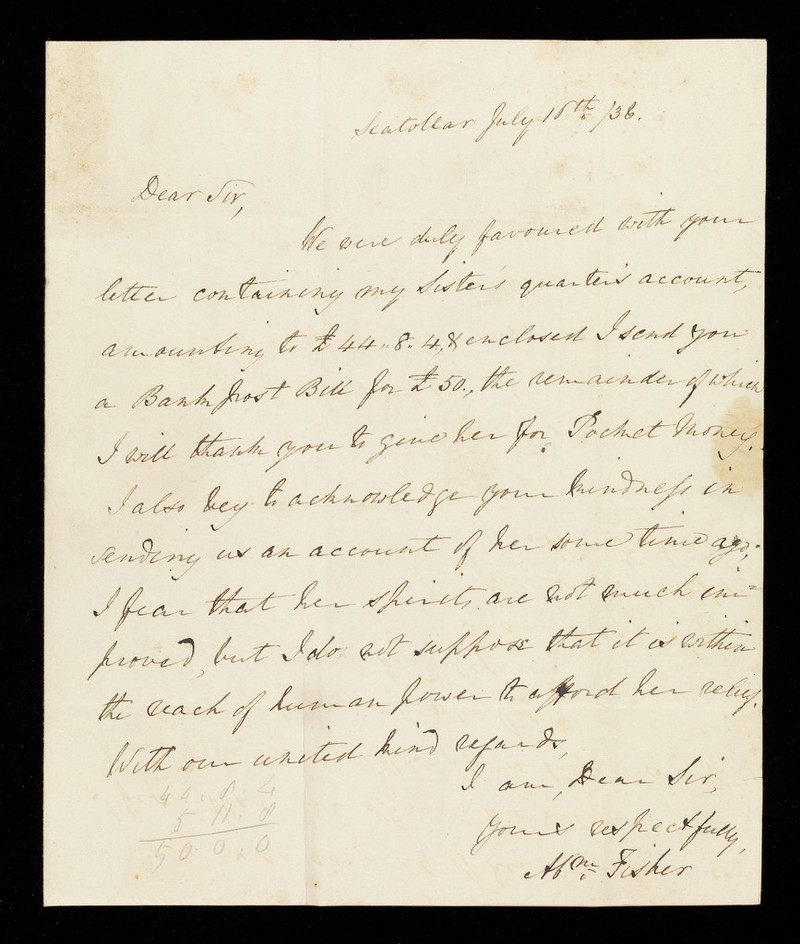 Seatollar July 18th /36.
Dear Sir,
We were duly favoured with your
letter containing my Sister's quarter's account,
amounting to £44..8..4, & enclosed I send you
a Bank post Bill for £50., the remainder of which
I will thank you to give her for Pocket Money.
I also beg to acknowledge your kindness in
sending us an account of her some time ago;
I fear that her spirits are not much im=
proved, but I do not suppose that it is within
the reach of human power to afford her relief.
With our united kind regards,
I am, Dear Sir,
yours respectfully,
Abm Fisher
44.8.4
5 11.8
50.0.0